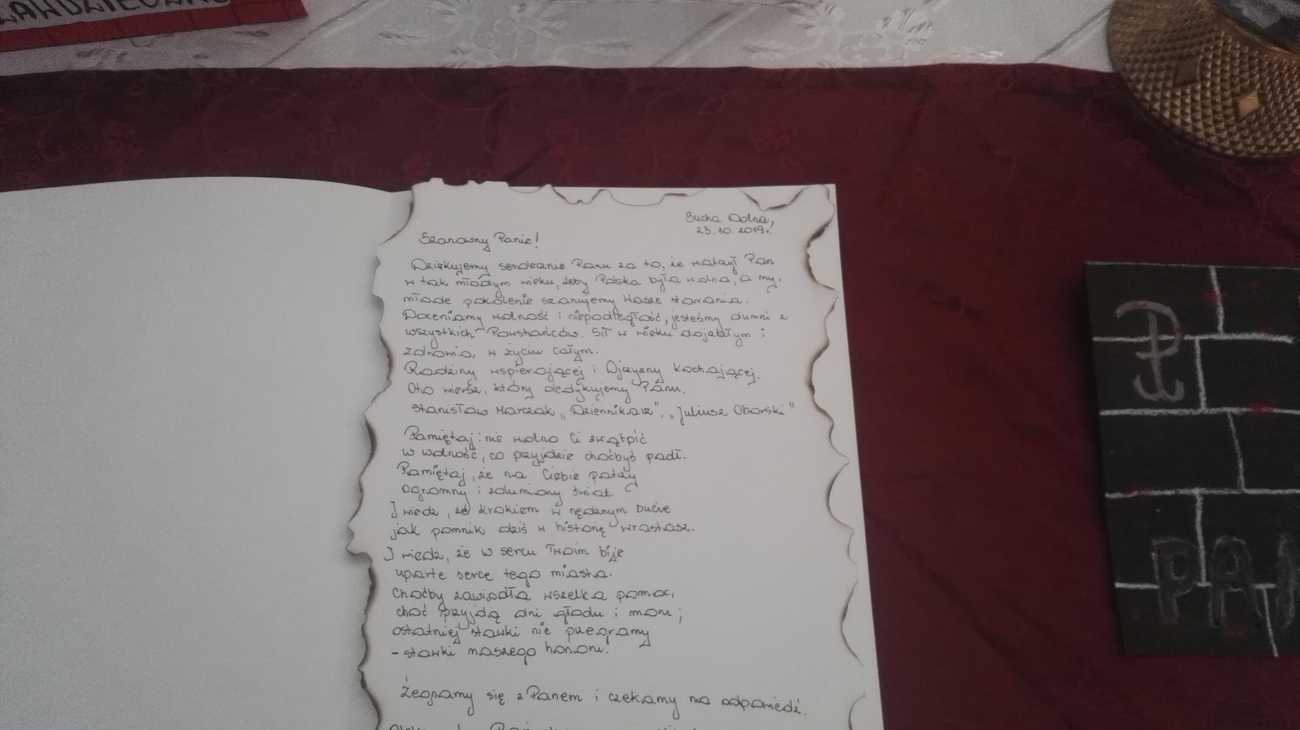 Sucha Dolna,
23.10.2019r.
Szanowny Panie!
Dziękujemy serdecznie Panu za to, że walczył Pan
w tak młodym wieku, żeby Polska była wolna, a my,
młode pokolenie szanujemy Wasze starania.
Doceniamy wolność i niepodległość, jesteśmy dumni z
wszystkich Powstańców. Sił w wieku dojrzałym i
zdrowia w życiu całym.
Rodziny wspierającej i Ojczyzny kochającej.
Oto wiersz, który dedykujemy Panu.
Stanisław Marczak „Dziennikarz". „Juliusz Oborski"
Pamiętaj: nie wolno Ci zwątpić
w wolność, co przyjdzie choćbyś padł.
Pamiętaj, że na Ciebie patrzy
ogromny i zdumiony świat
I wiedz, że krokiem w nędznym bucie
jak pomnik dziś w historię wrastasz.
I wiedz, że w sercu Twoim bije
uparte serce tego miasta.
Choćby zawiodła wszelka pomoc,
choć przyjdą dni głodu i moru,
ostatniej stawki nie przegramy
- stawki naszego honoru.
Żegnamy się z Panem i czekamy na odpowiedź.
P
PA